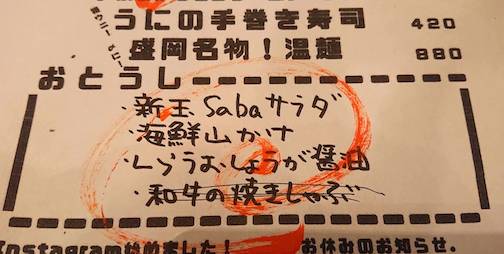 うにの手巻き寿司 420
盛岡名物！温麺 880
おとうし
・新玉Sabaサラダ
・海鮮山かけ
・しらうおしょうが醤油
・和牛の焼きしゃぶ
Instagram始めました！ お休みのお知らせ.